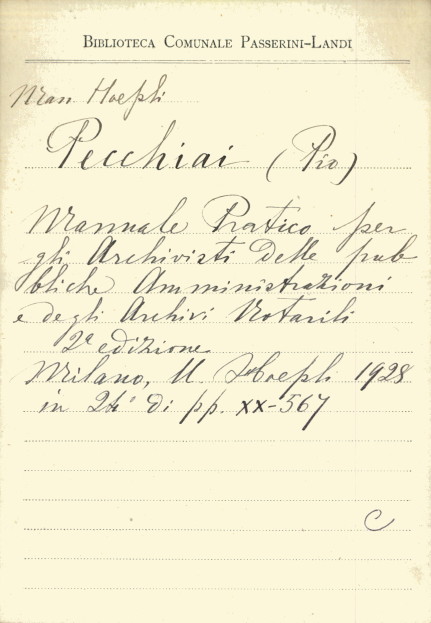 BIBLIOTECA COMUNALE PASSERINI-LANDI
Man Hoepli
Pecchiai (Pio)
Manuale Pratico per
gli Archivisti delle pub
bliche Amministrazioni
e degli Archivi Notarili
2ª edizione
Milano, U. Hoepli 1928
in 24° di pp. xx-567
C